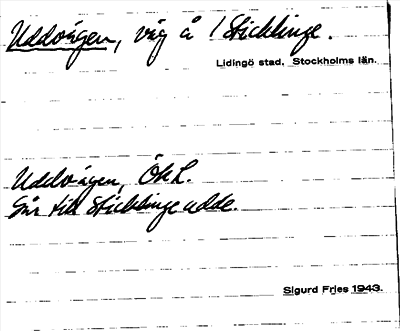 Uddvägen, väg å / Sticklinge.
Lidingö stad, Stockholms län.
Uddvägen, ÖkL.
Går till Sticklinge udde.
Sigurd Fries 1943.